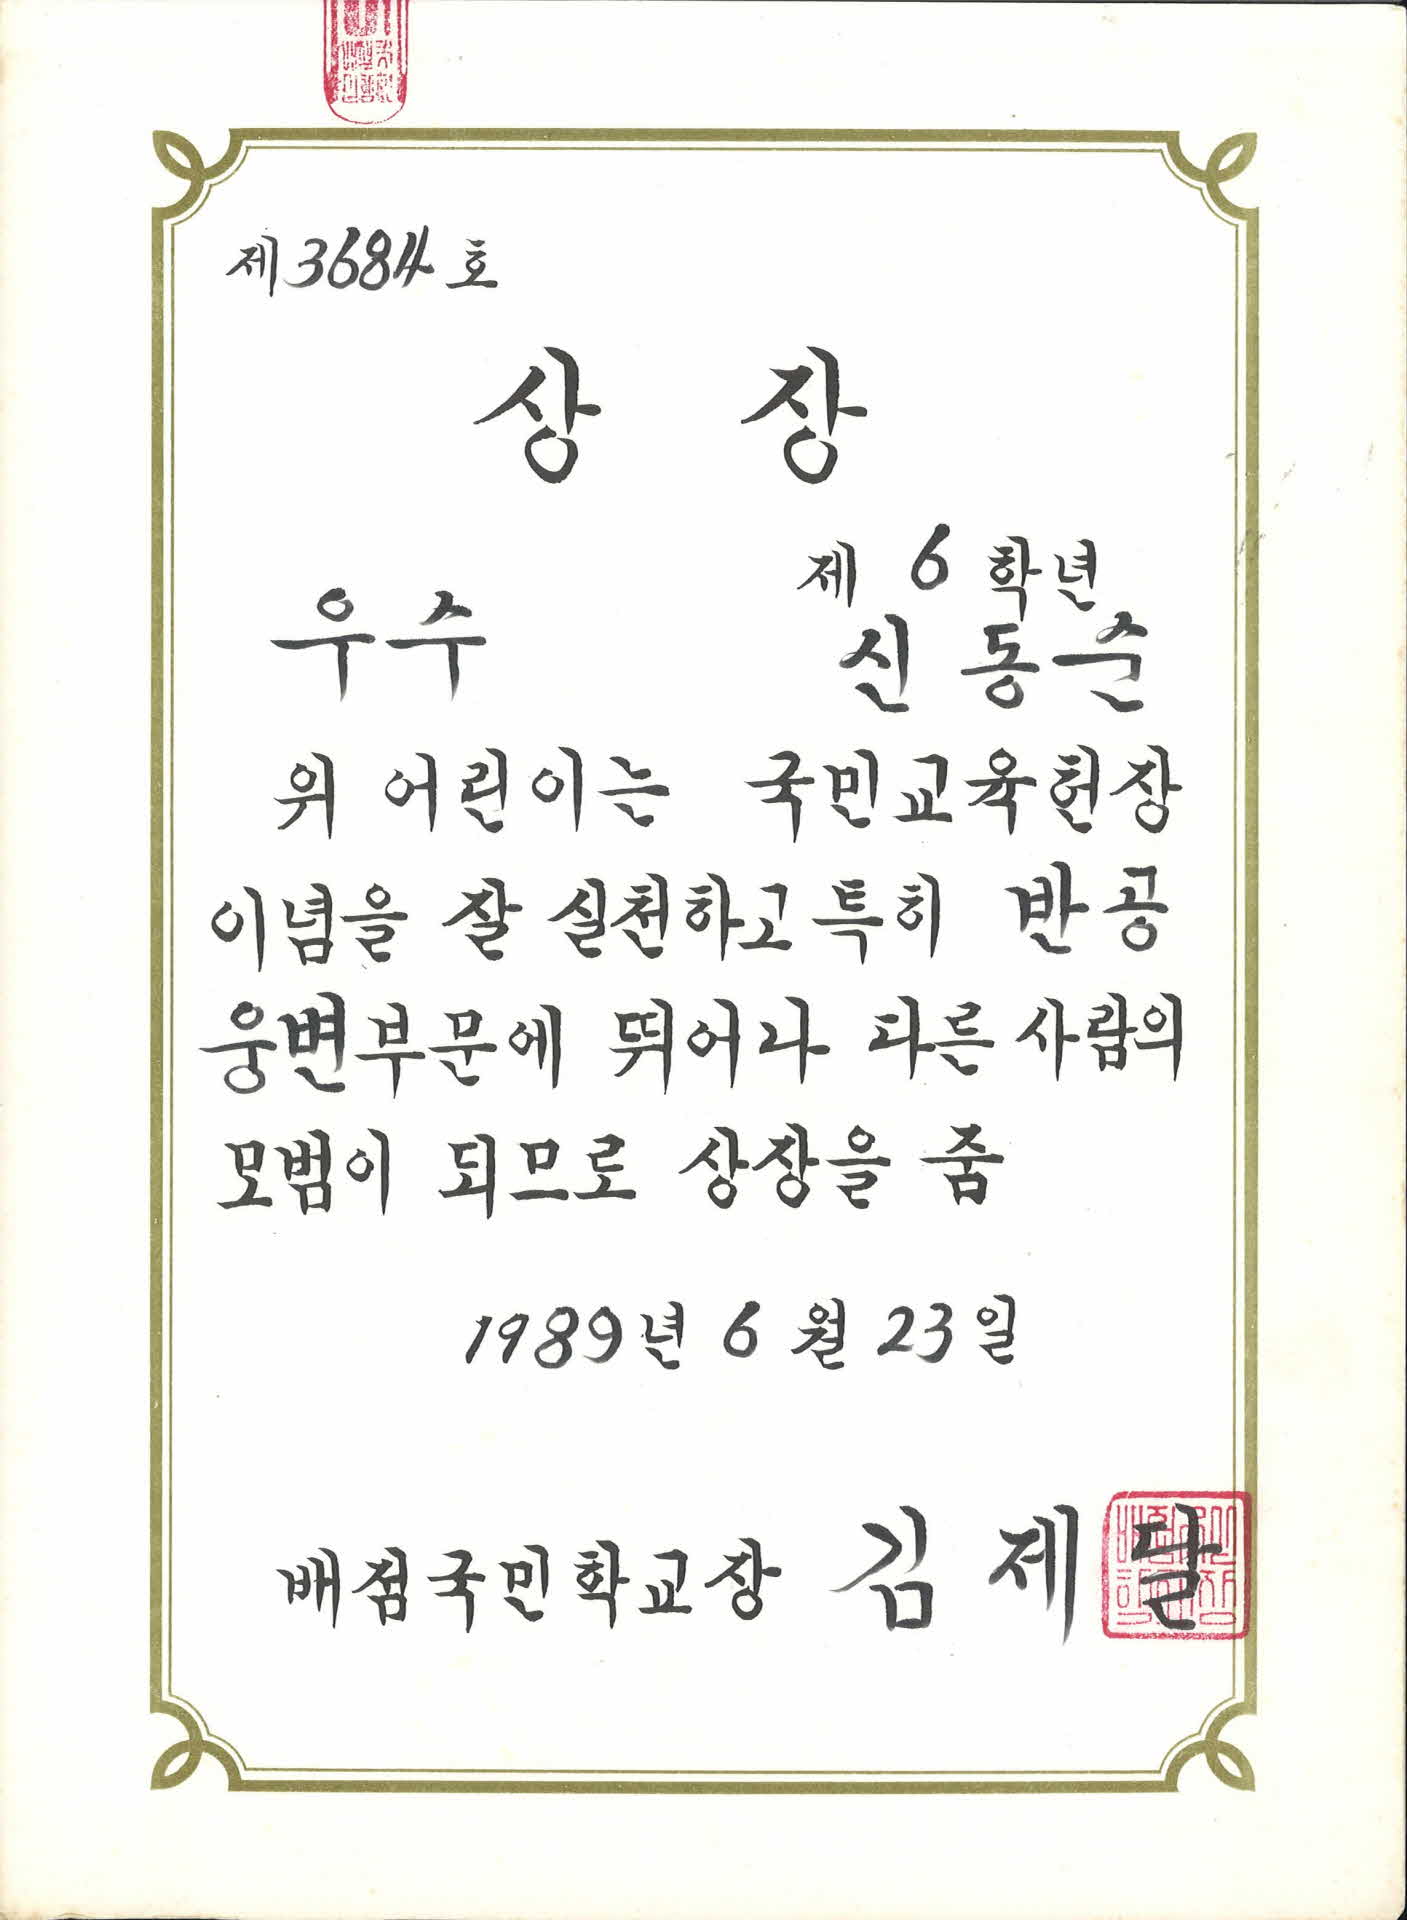 제3684호
상 장
제 6 학년
우수
신동순
위 어린이는 국민교육헌장
이념을 잘 실천하고 특히 반공
웅변부문에 뛰어나 다른 사람의
모범이 되므로 상장을 줌
1989년 6월 23일
배점국민학교장 김제달